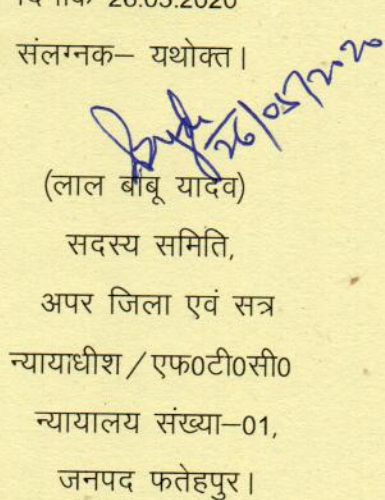 दिनांक 26.05.2020
संलग्नक– यथोक्त।
26/05/2020
(लाल बाबू यादव)
सदस्य समिति,
अपर जिला एवं सत्र
न्यायाधीश/एफ0टी0सी0
न्यायालय संख्या–01,
जनपद फतेहपुर।